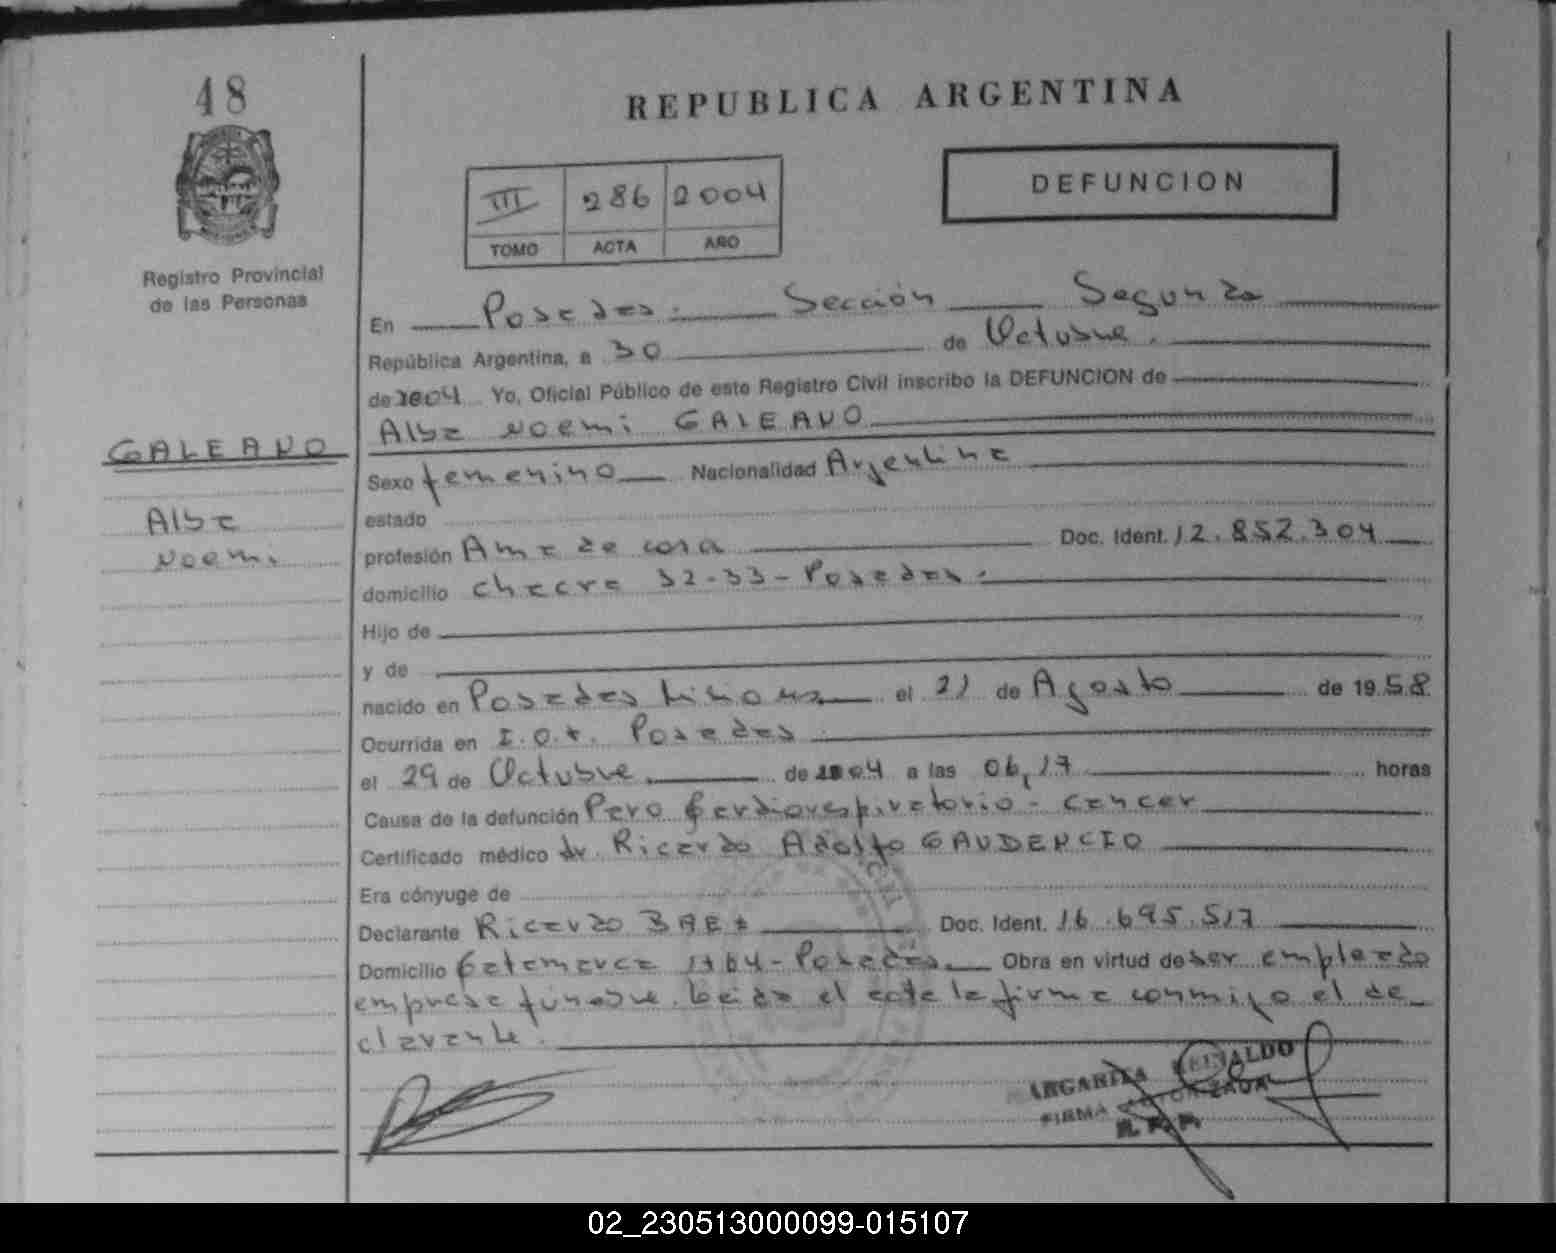 48
REPUBLICA ARGENTINA
III 286 2004
TOMO ACTA AÑO
DEFUNCION
Registro Provincial
de las Personas
En Posadas. Sección Segunda
República Argentina, a 30 de Octubre.
de 2004 Yo, Oficial Público de este Registro Civil inscribo la DEFUNCION de
Alba Noemi GALEANO
GALEANO
Alba
Noemi
Sexo femenino Nacionalidad Argentina
estado
profesión Ama de casa Doc. Ident. 12.852.304
domicilio Chacra 32-33-Posadas.
Hijo de
y de
nacido en Posadas Misiones el 21 de Agosto de 1958
Ocurrida en Posadas
el 29 de Octubre. de 2004 a las 06,17 horas
Causa de la defunción Paro Cardiorespiratorio - cancer
Certificado médico dr. Ricardo Adolfo GAUDENCIO
Era cónyuge de
Declarante Ricardo BAEZ Doc. Ident. 16.695.517
Domicilio Catamarca - Posadas. Obra en virtud de ser empleado
empresa funebre. Leida el acta la firma conmigo el de-
clarante.
MARGARITA REINALDO
FIRMA AUTORIZADA
R. P. P.
02_230513000099-015107